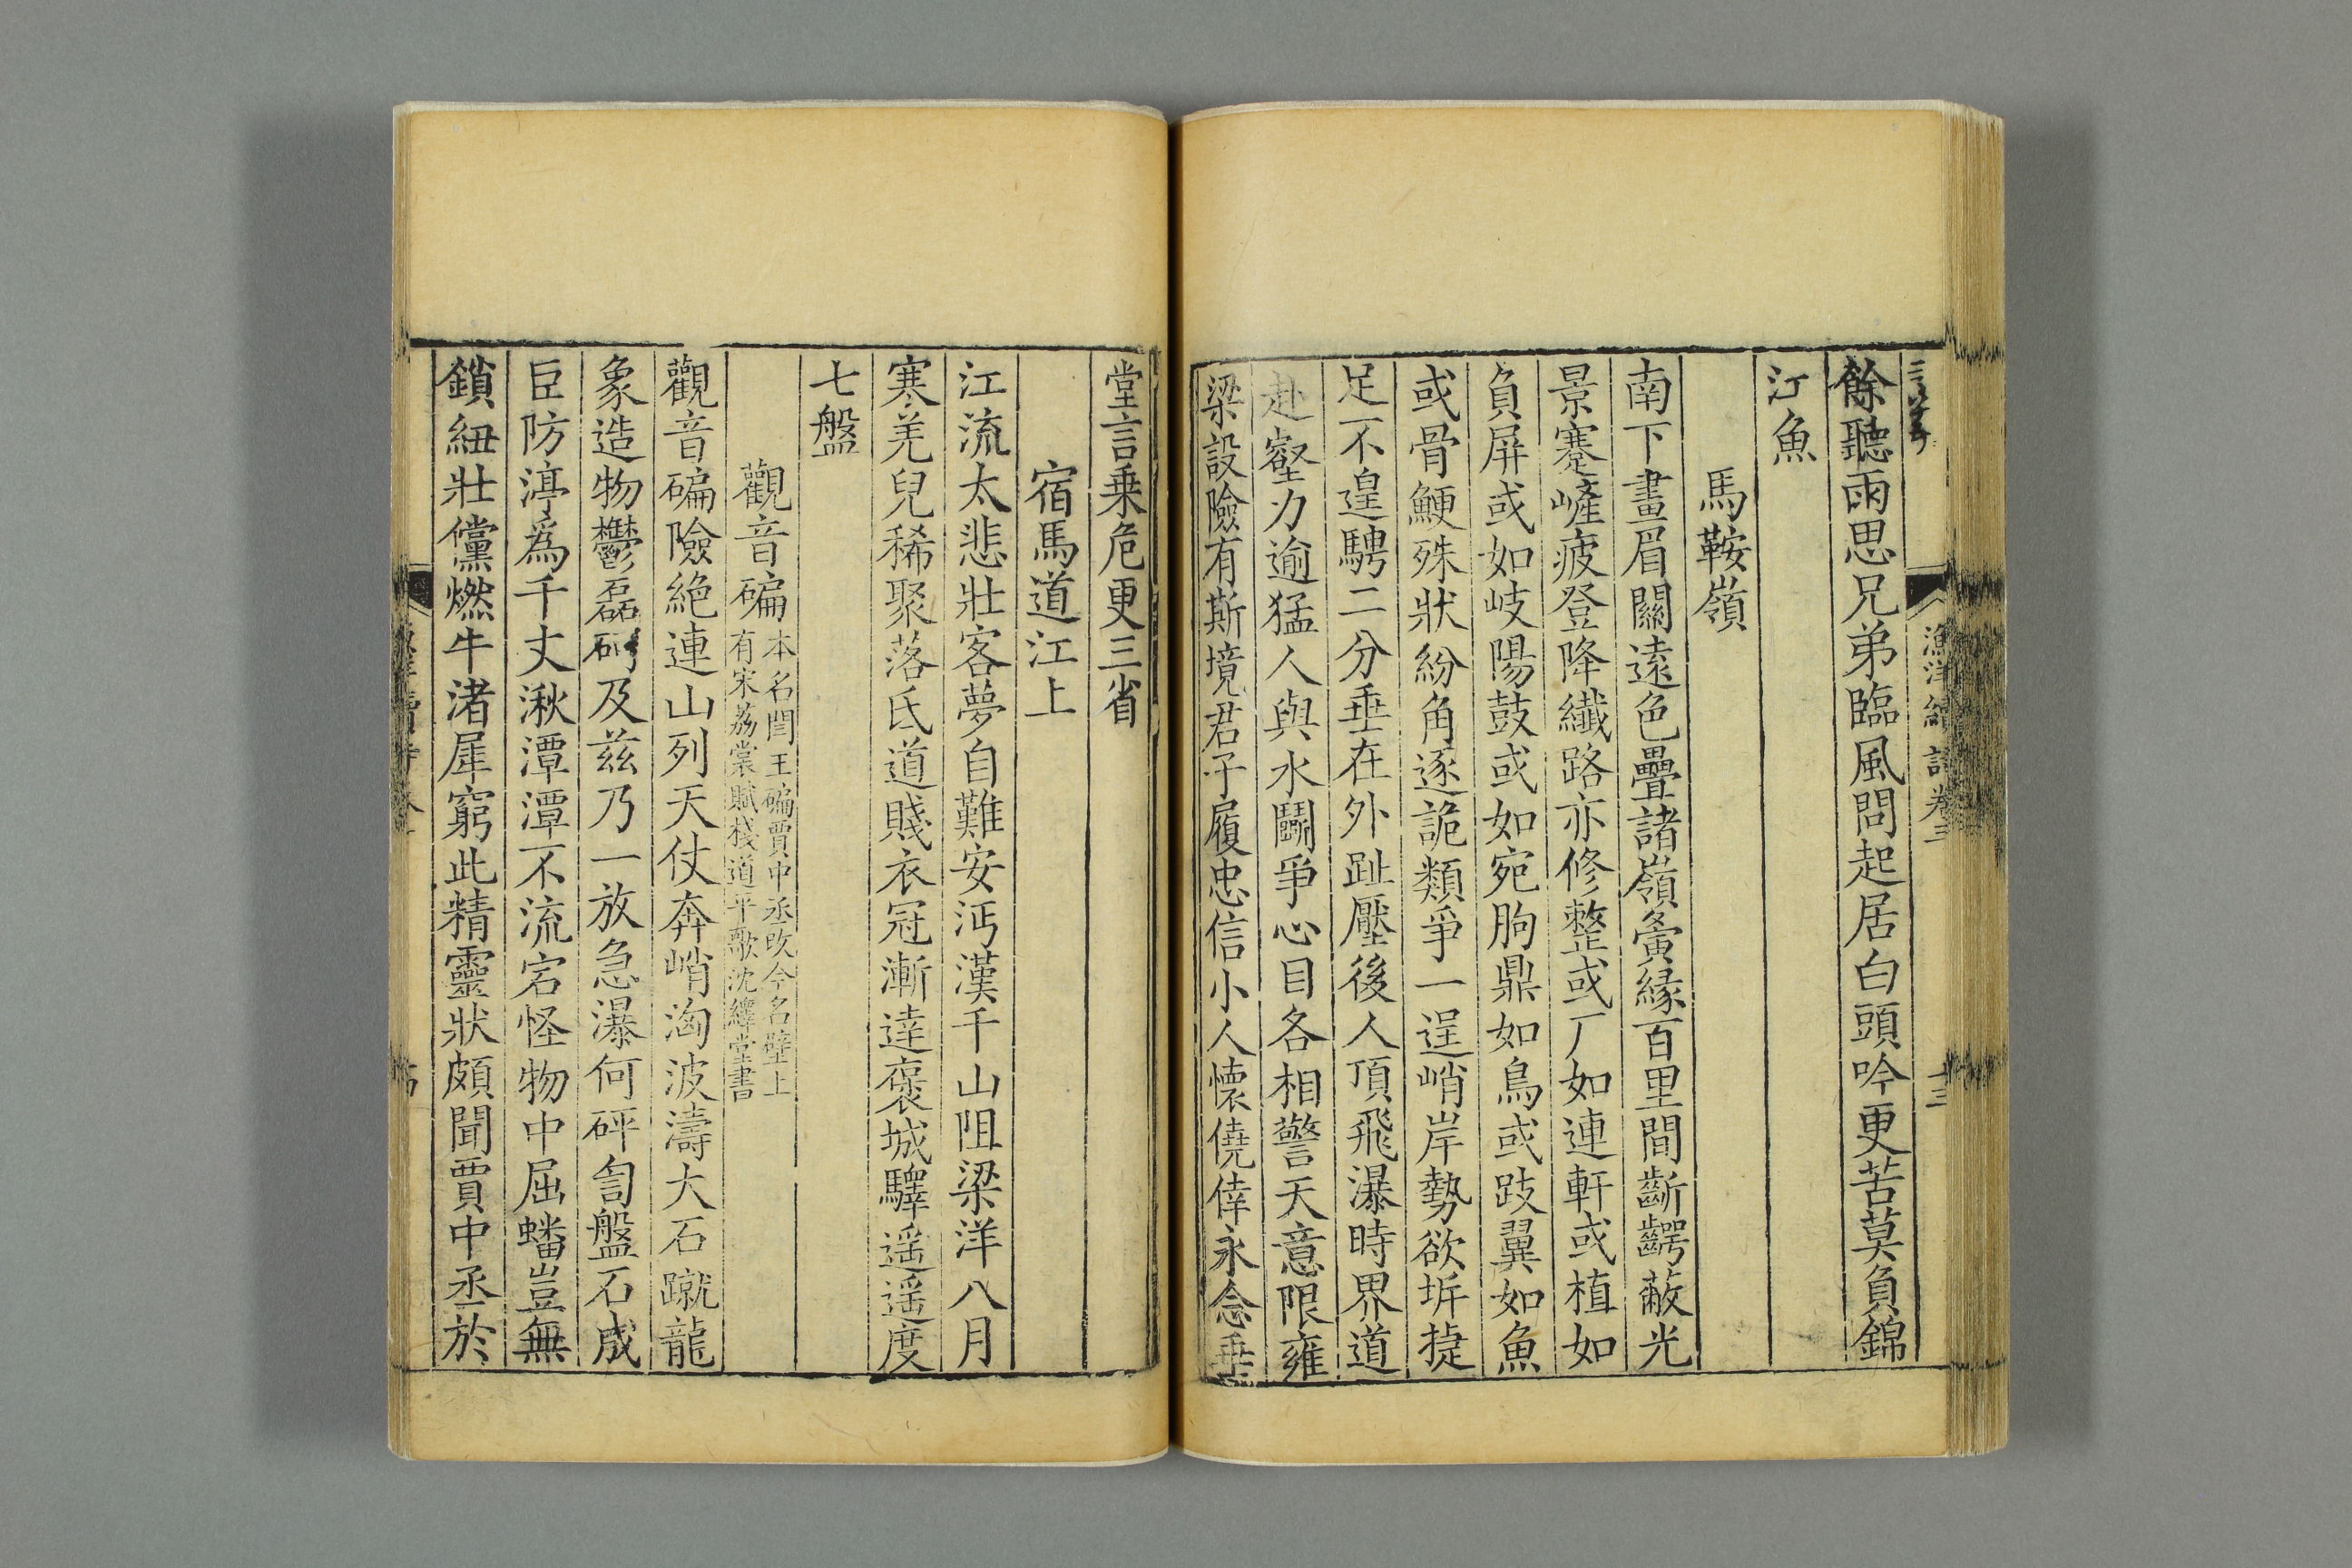 漁洋續詩卷三
十三
餘聽雨思兄弟臨風問起居白頭吟更苦莫負錦
江魚
馬鞍嶺
南下畫眉關遠色疊諸嶺夤緣百里間齗齶蔽光
景蹇嵼疲登降纖路亦修整或厂如連軒或植如
負屏或如岐陽鼓或如宛朐鼎如鳥或跂翼如魚
或骨鯁殊狀紛角逐詭類爭一逞峭岸勢欲坼捷
足不遑騁二分垂在外趾壓後人頂飛瀑時界道
赴壑力逾猛人與水鬭爭心目各相警天意限雍
梁設險有斯境君子履忠信小人懷僥倖永念垂
堂言乗危更三省
宿馬道江上
江流太悲壯客夢自難安沔漢千山阻梁洋八月
寒羌兒稀聚落氐道賤衣冠漸逹褒城驛遥遥度
七盤
觀音碥
本名閻王碥賈中丞改今名壁上
有宋荔裳賦棧道平歌沈繹堂書
觀音碥險絶連山列天仗奔峭洶波濤大石蹴龍
象造物鬱磊砢及兹乃一放急瀑何砰訇盤石成
巨防渟爲千丈湫潭潭不流宕怪物中屈蟠豈無
鎖紐壯儻燃牛渚犀窮此精靈狀頗聞賈中丞於